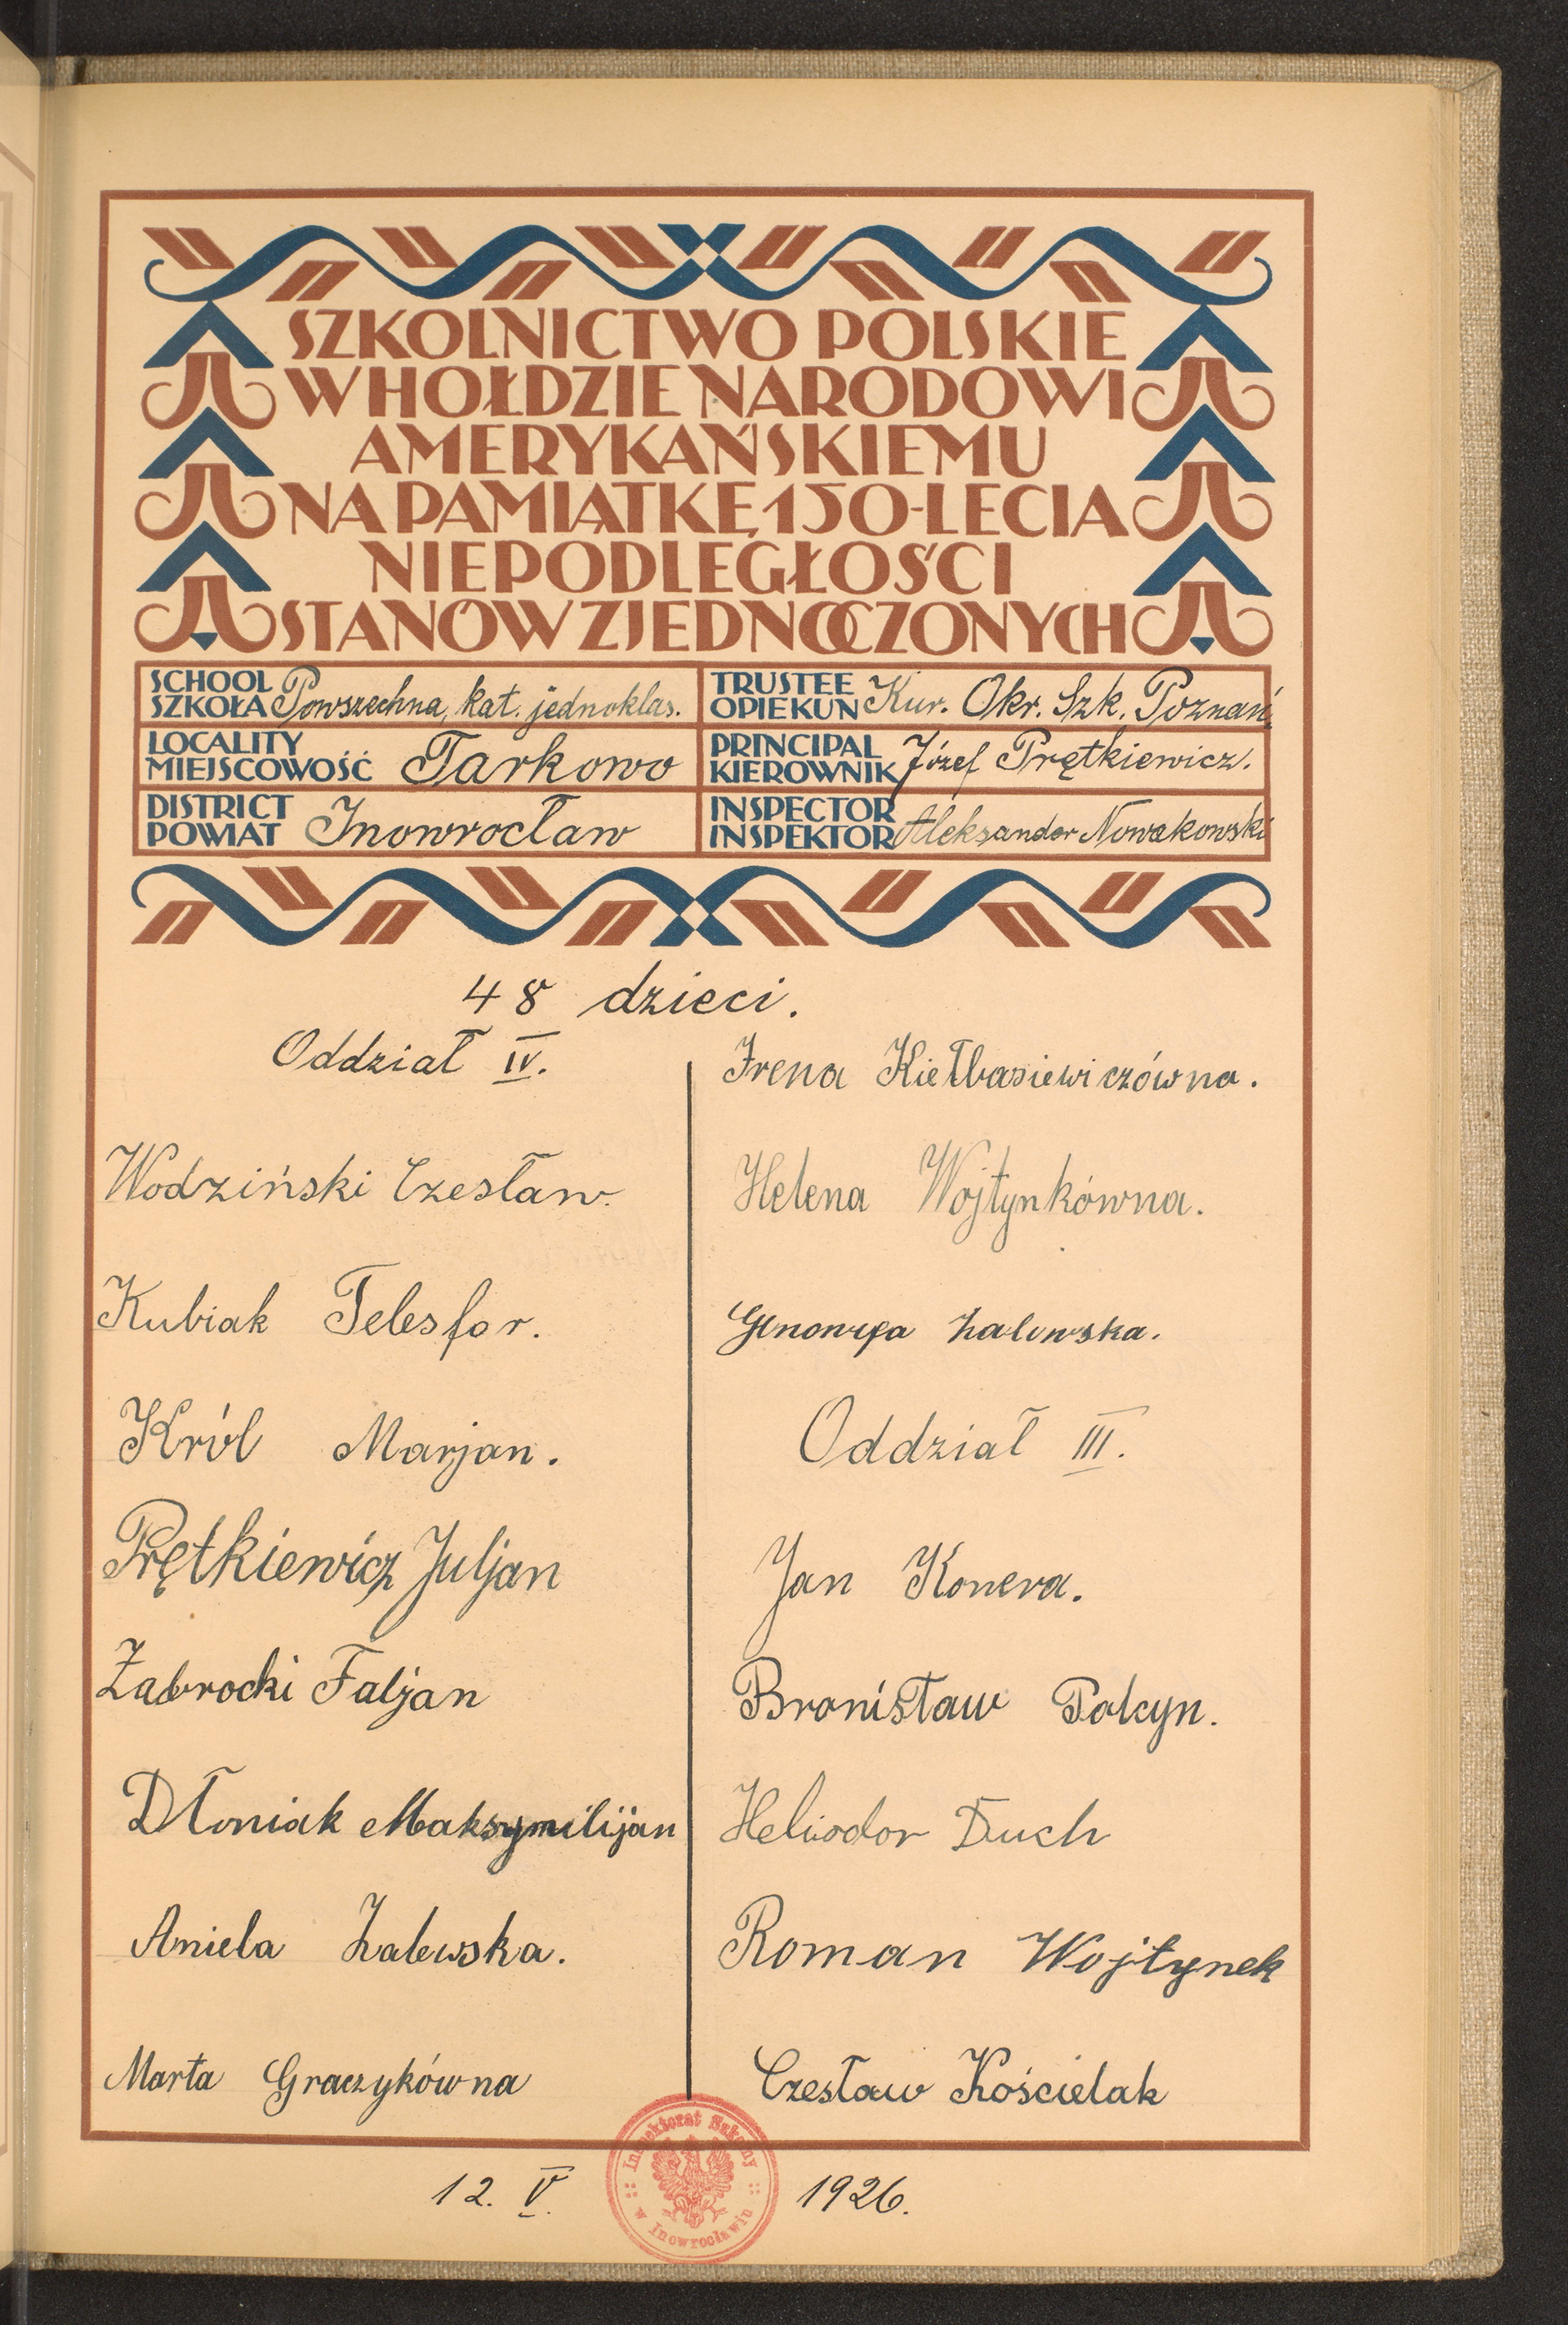 SZKOLNICTWO POLSKIE
W HOŁDZIE NARODOWI
AMERYKAŃSKIEMU
NA PAMIĄTKĘ 150-LECIA
NIEPODLEGŁOŚCI
STANÓW ZJEDNOCZONYCH
SCHOOL
SZKOŁA Powszechna, kat. jednoklas.
TRUSTEE
OPIEKUN Kur. Okr. Szk. Poznań
LOCALITY
MIEJSCOWOŚĆ Tarkowo
PRINCIPAL
KIEROWNIK Józef Prętkiewicz.
DISTRICT
POWIAT Inowrocław
INSPECTOR
INSPEKTOR Aleksander Nowakowski
48 dzieci.
Oddział IV.
Wodziński Czesław.
Kubiak Telesfor.
Król Marjan.
Prętkiewicz Juljan
Zabrocki Faljan
Dłoniak Maksymilijan
Aniela Zalewska.
Marta Graczykówna
Irena Kiełbasiewiczówna.
Helena Wojtynkówna.
Genowefa Zalewska.
Oddział III.
Jan Konera.
Bronisław Polcyn.
Heliodor Duch
Roman Wojtynek
Czesław Kościelak
12. V. 1926.
Inspektorat Szkolny
w Inowrocławiu